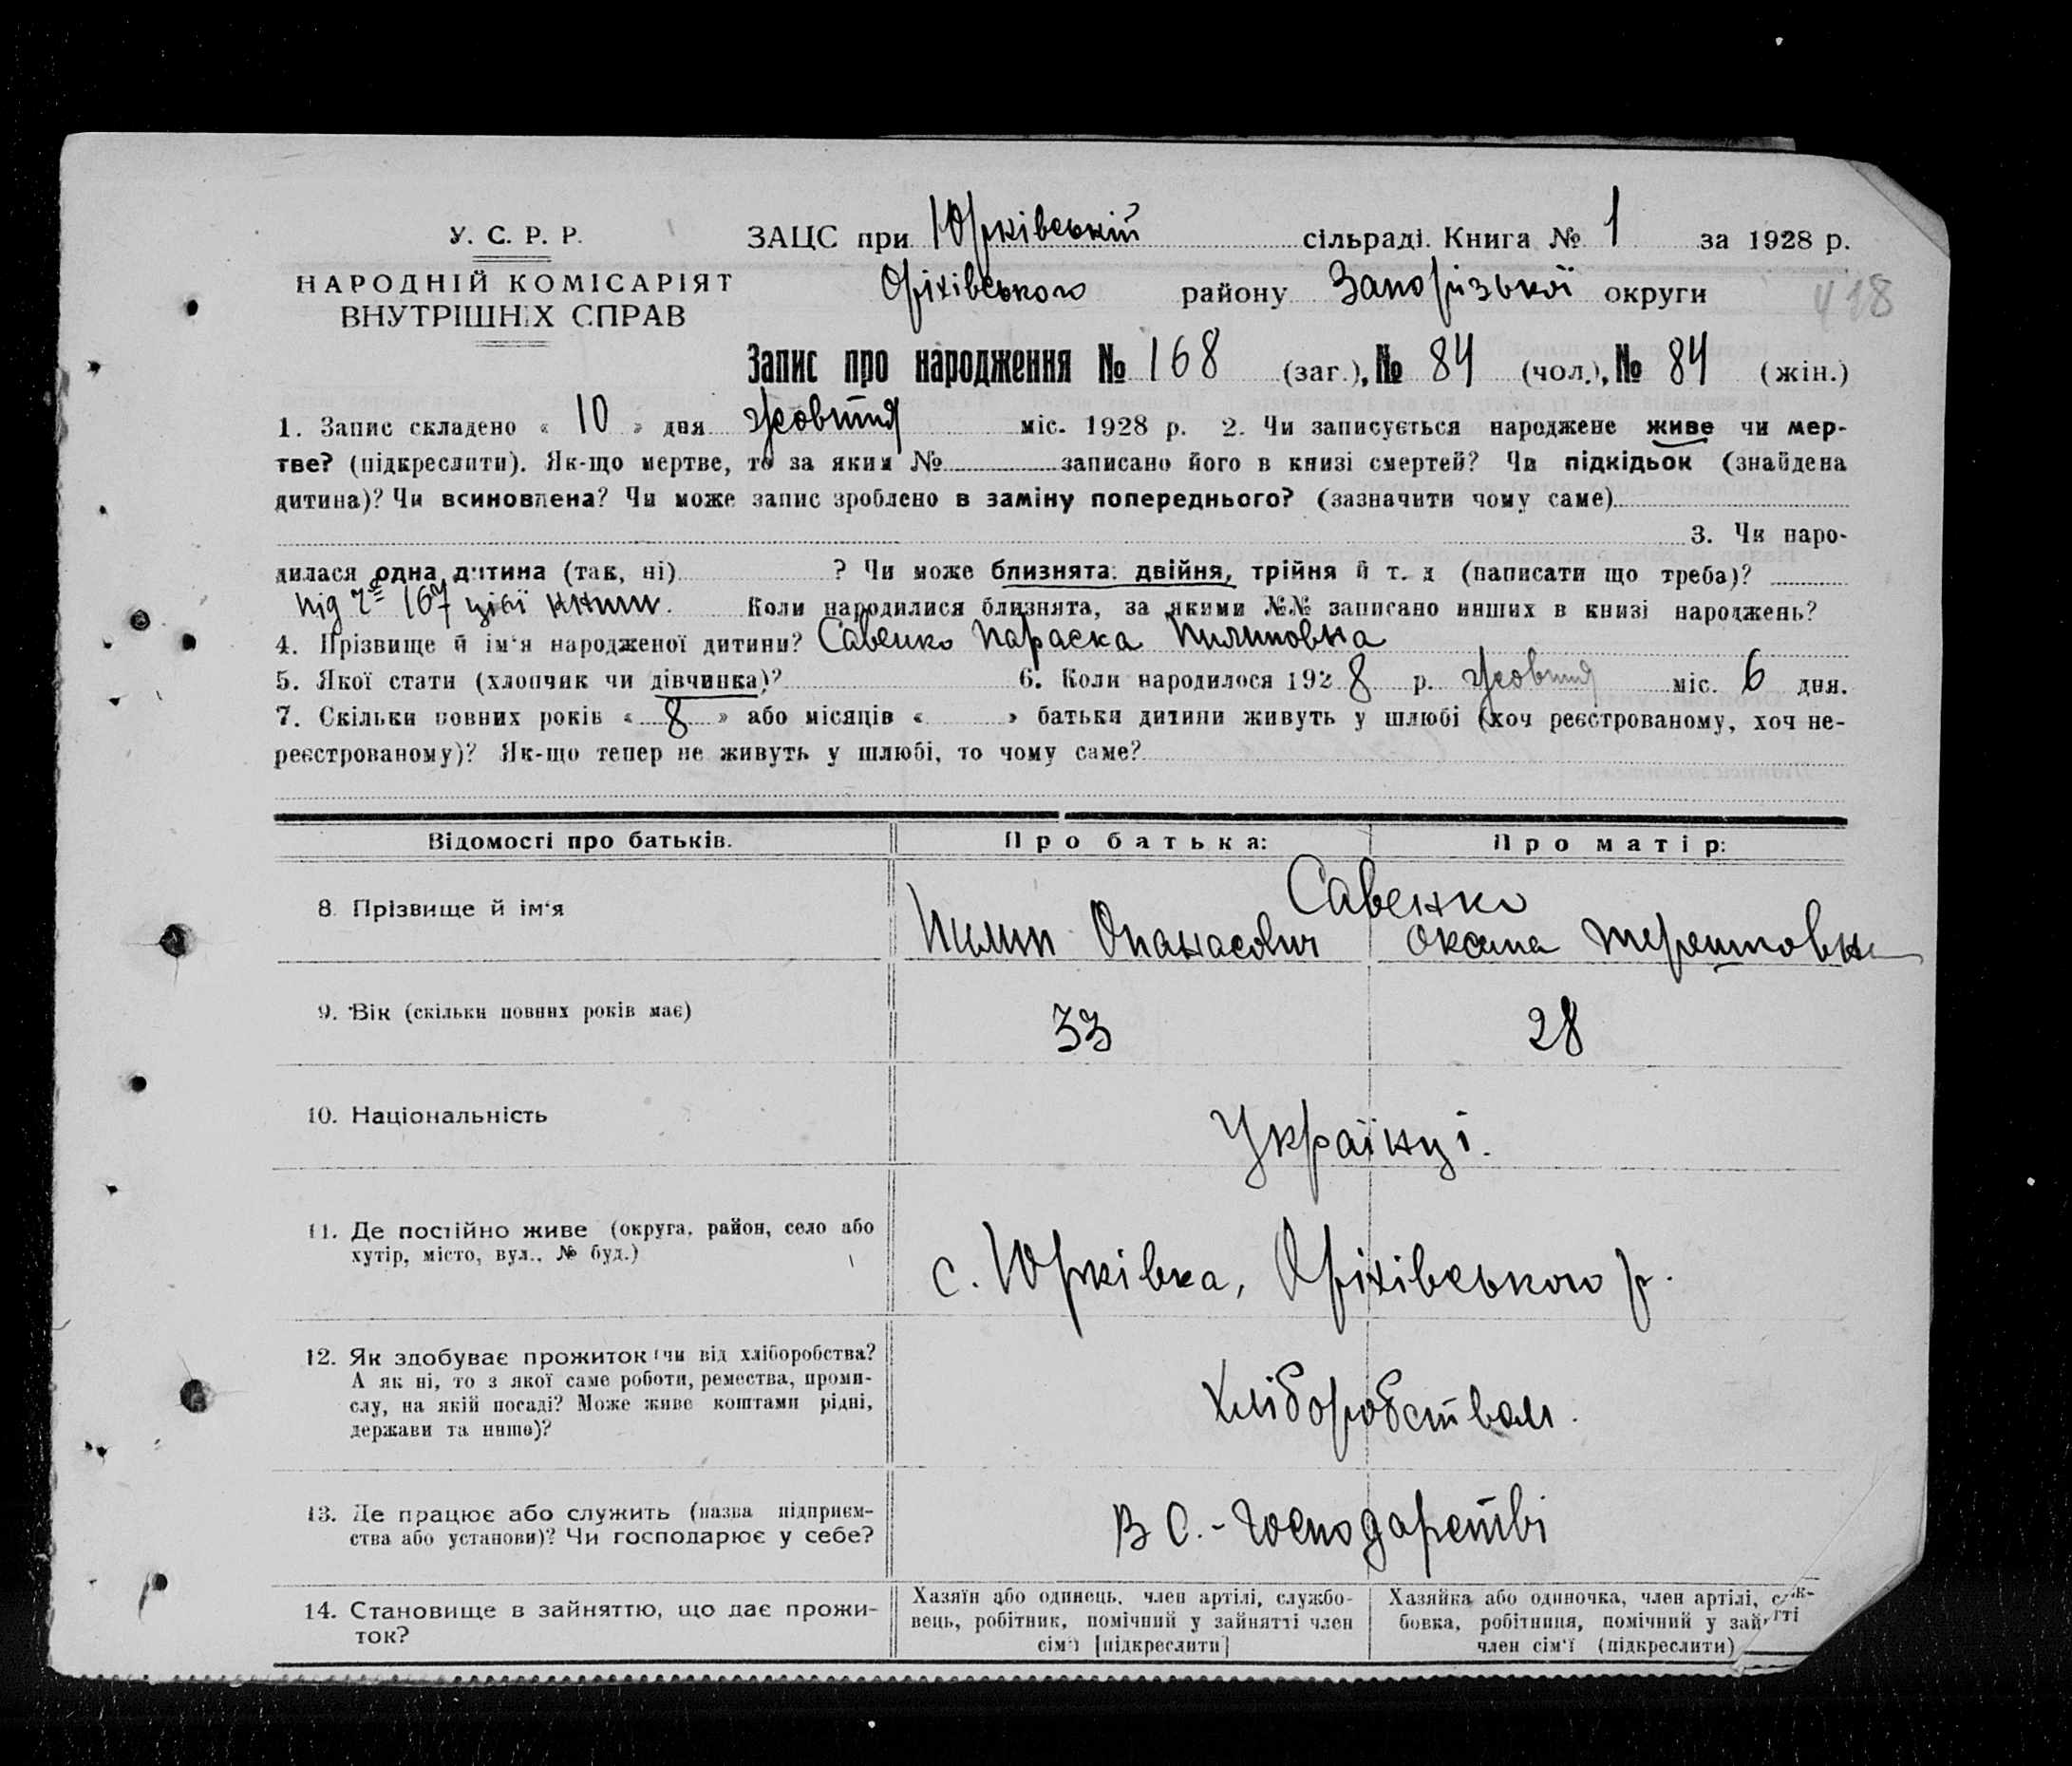 У. С. Р. Р.
НАРОДНІЙ КОМІСАРІЯТ
ВНУТРІШНІХ СПРАВ
ЗАЦС при Юрківській сільраді. Книга № 1 за 1928 р.
Оріхівського району Запорізької округи
418
Запис про народження № 168 (заг.), № 84 (чол.), № 84 (жін.)
1. Запис складено « 10 » дня жовтня міс. 1928 р. 2. Чи записується народжене живе чи мер-
тве? (підкреслити). Як-що мертве, то за яким № записано його в книзі смертей? Чи підкідьок (знайдена
дитина)? Чи всиновлена? Чи може запис зроблено в заміну попереднього? (зазначити чому саме)
3. Чи наро-
дилася одна дитина (так, ні) ? Чи може близнята: двійня, трійня й т. д (написати що треба)?
під № 167 цієї книги. Коли народилися близнята, за якими №№ записано инших в книзі народжень?
4. Прізвище й ім'я народженої дитини? Савенко Параска Пилиповна
5. Якої стати (хлопчик чи дівчинка)? 6. Коли народилося 1928 р. жовтня міс. 6 дня.
7. Скільки повних років « 8 » або місяців « » батьки дитини живуть у шлюбі (хоч реєстрованому, хоч не-
реєстрованому)? Як-що тепер не живуть у шлюбі, то чому саме?
Відомості про батьків. Про батька: Про матір:
8. Прізвище й ім'я Савенко
Пилип Опанасович Оксана Терешковна
9. Вік (скільки повних років має) 33 28
10. Національність Українці.
11. Де постійно живе (округа, район, село або
хутір, місто, вул., № буд.)
с. Юрківка, Оріхівського р.
12. Як здобуває прожиток (чи від хліборобства?
А як ні, то з якої саме роботи, ремества, проми-
слу, на якій посаді? Може живе коштами рідні,
держави та инше)?
Хліборобством.
13. Де працює або служить (назва підприєм-
ства або установи)? Чи господарює у себе?
В С.-господарстві
14. Становище в зайняттю, що дає прожи-
ток?
Хазяїн або одинець, член артілі, службо-
вець, робітник, помічний у зайнятті член
сім'ї [підкреслити]
Хазяйка або одиночка, член артілі,
бовка, робітниця, помічний у зайнятті
член сім'ї (підкреслити)